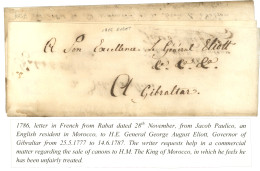 A Son Excellence le General Eliott
&c. &c. &c.
A Gibraltar.
1786, letter in French from Rabat dated 28th November, from Jacob Paulico, an
English resident in Morocco, to H.E. General George August Eliott, Governor of
Gibraltar from 25.5.1777 to 14.6.1787. The writer requests help in a commercial
matter regarding the sale of canons to H.M. The King of Morocco, in which he feels he
has been unfairly treated.